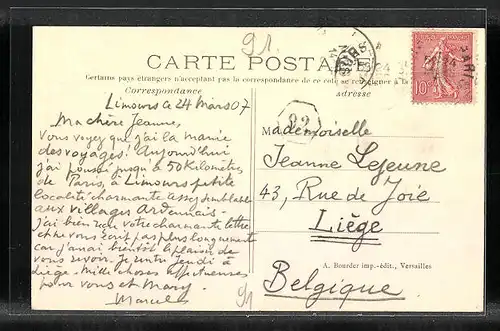 91.
CARTE POSTALE
Certains pays étrangers n'acceptant pas la correspondance de ce côté se renseigner
Correspondance
adresse
10c
92
Limours ce 24 Mars 07
Ma chère Jeanne,
Vous voyez que j'ai la manie
des voyages! Aujourd'hui
j'ai poussé jusqu'à 50 Kilomètres
de Paris, à Limours petite
localité charmante assez semblable
aux villages Ardennais.
j'ai bien reçu votre charmante lettre
et ne vous écris pas plus longuement
car j'aurai bientôt le plaisir de
vous revoir. Je rentre jeudi à
Liège. Mille choses affectueuses
pour vous et Mary.
Marcel
Mademoiselle
Jeanne Lejeune
43, Rue de Joie
Liège
A. Bourdier imp.-édit., Versailles
Belgique
91